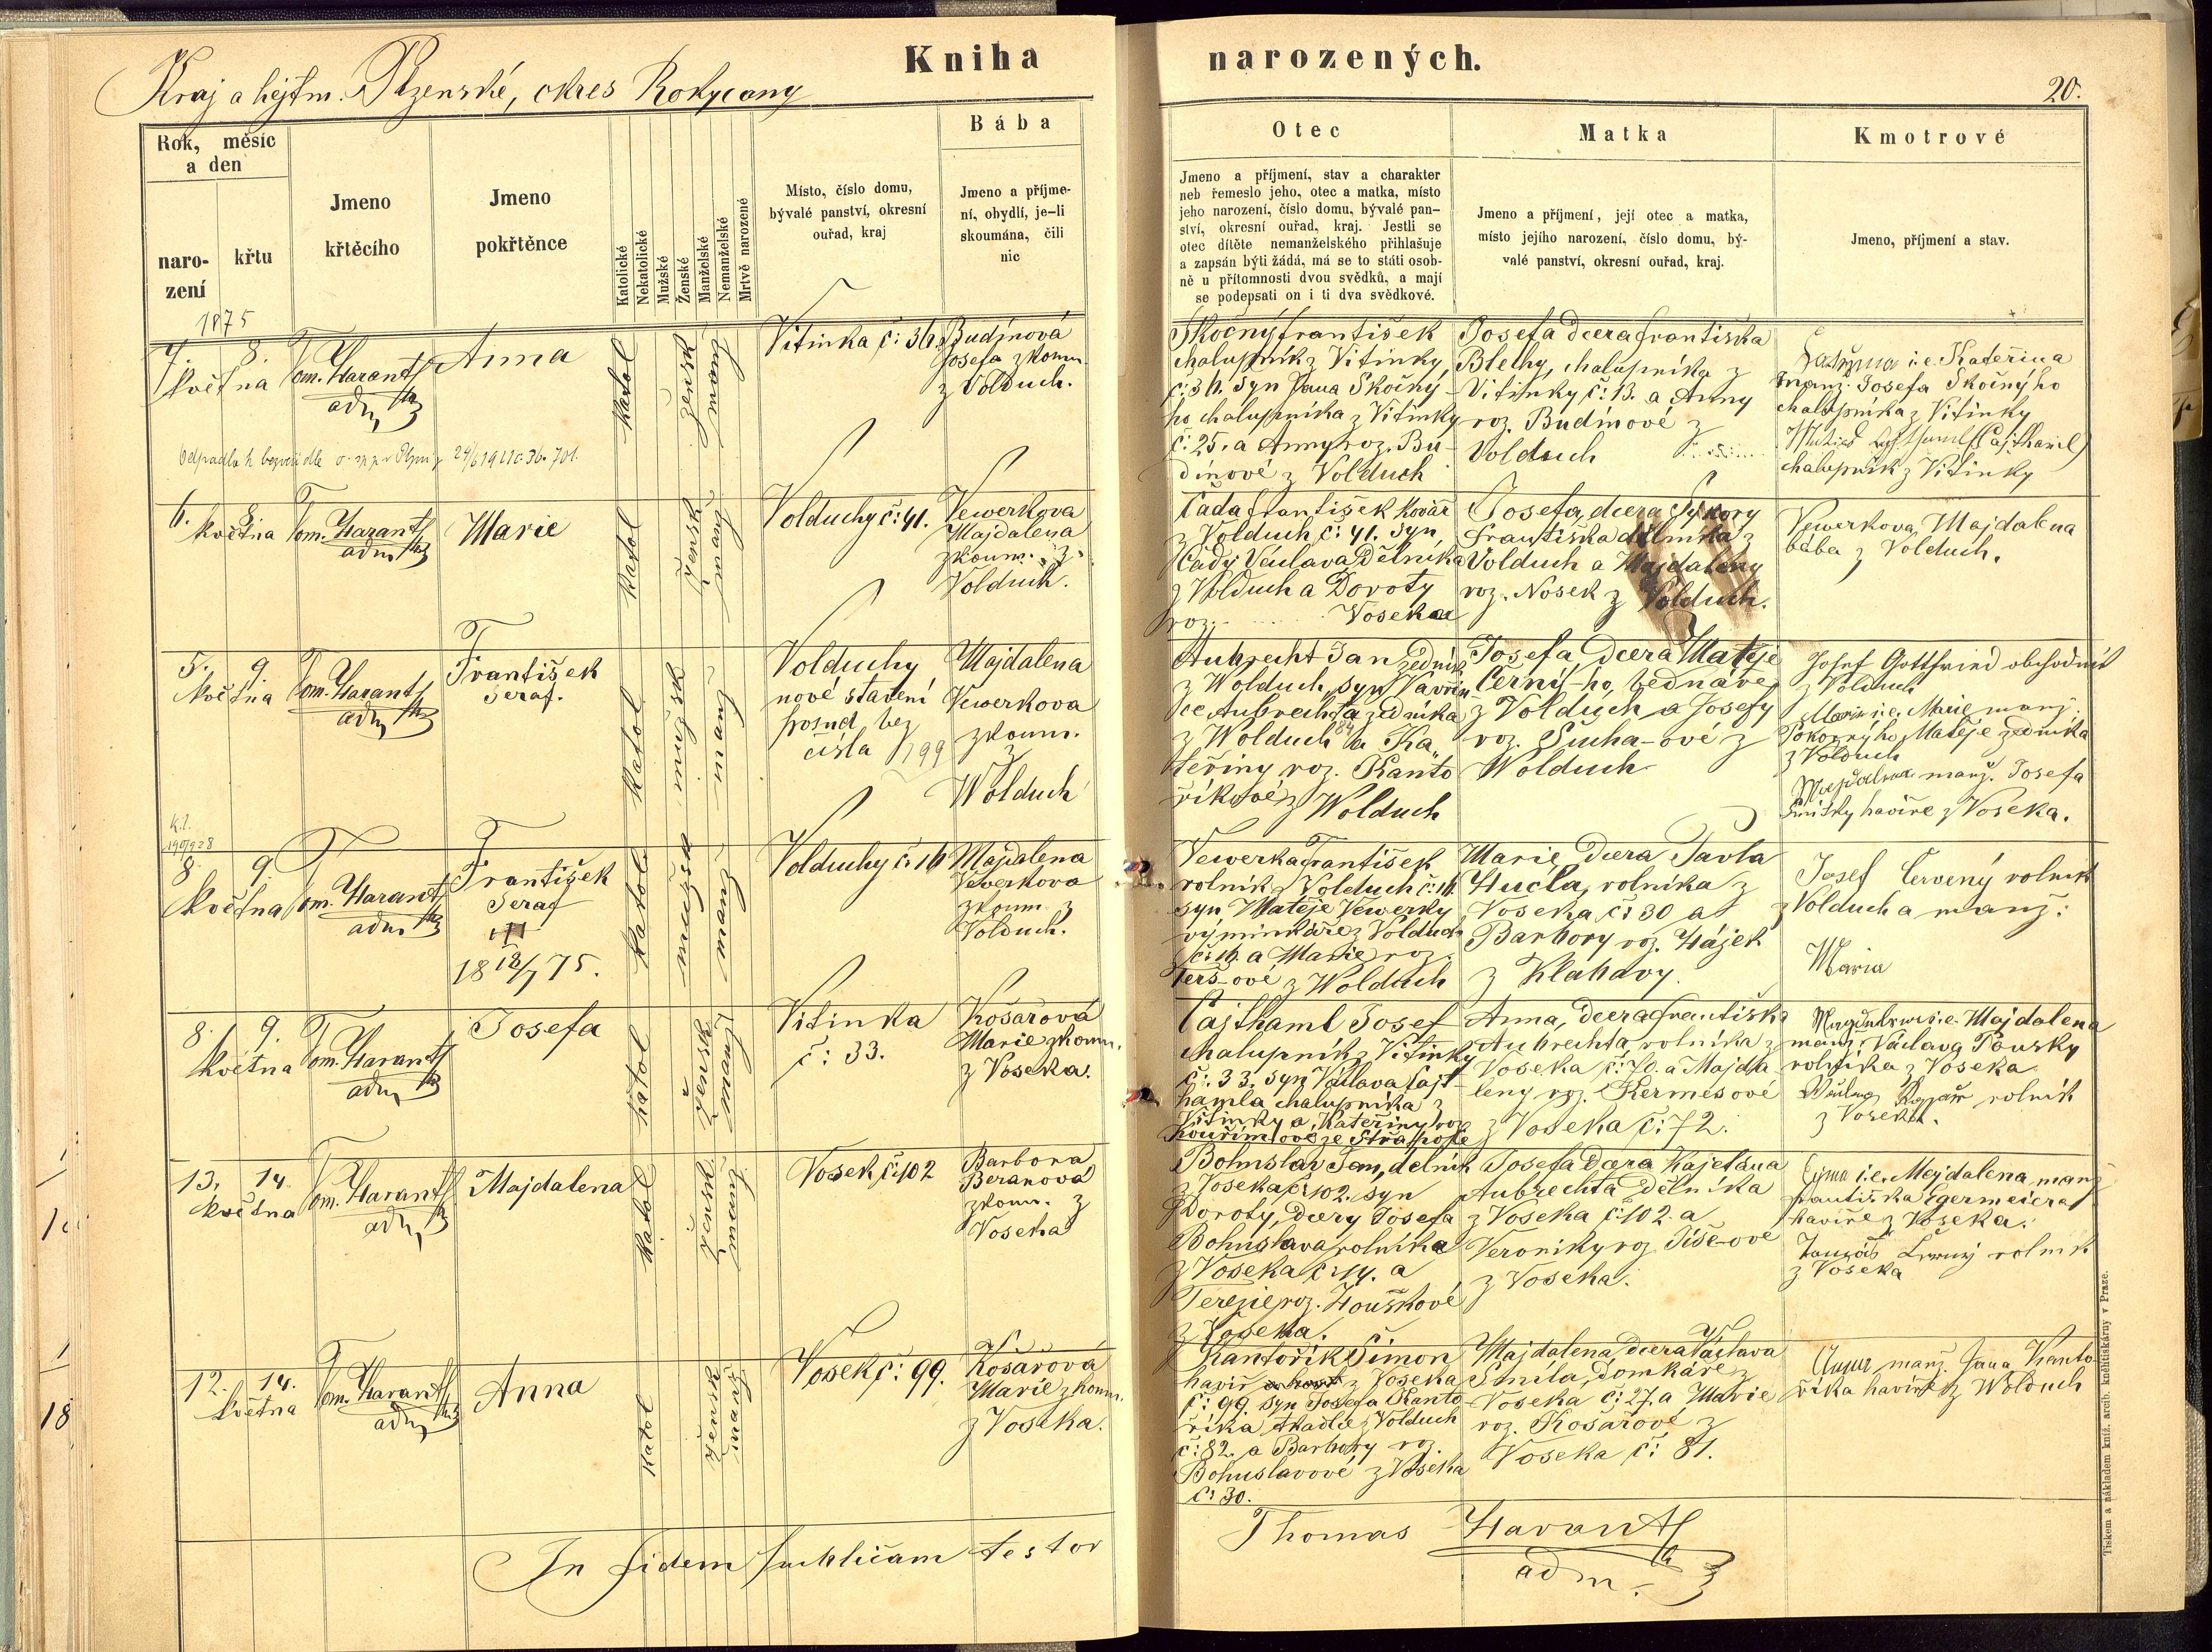 Kniha
narozených.
Kraj a hejtm. Plzenské, okres Rokycany
20.
Rok, měsíc
a den
naro-
zení
křtu
Jmeno
křtěcího
Jmeno
pokřtěnce
Katolické
Nekatolické
Mužské
Ženské
Manželské
Nemanželské
Mrtvě narozené
Místo, číslo domu,
bývalé panství, okresní
ouřad, kraj
Bába
Jmeno a příjme-
ní, obydlí, je-li
skoumána, čili
nic
Otec
Jmeno a příjmení, stav a charakter
neb řemeslo jeho, otec a matka, místo
jeho narození, číslo domu, bývalé pan-
ství, okresní ouřad, kraj. Jestli se
otec dítěte nemanželského přihlašuje
a zapsán býti žádá, má se to státi osob-
ně u přítomnosti dvou svědků, a mají
se podepsati on i ti dva svědkové.
Matka
Jmeno a příjmení, její otec a matka,
místo jejího narození, číslo domu, bý-
valé panství, okresní ouřad, kraj.
Kmotrové
Jmeno, příjmení a stav.
1875
7. 8.
května
Tom. Harant
adm
Anna
katol
žensk
manž
Vitinka č: 36.
Budínová
Josefa zkoum.
z Volduch.
Skočný František
chalupník z Vitinky
č: 36. syn Jana Skočný-
ho chalupníka z Vitinky
č: 25. a Anny roz. Bu-
dínové z Volduch
Josefa dcera Františka
Blechy, chalupníka z
Vitinky č: 13. a Anny
roz. Budínové z
Volduch
i.e. Kateřina
manž. Josefa Skočnýho
chalupníka z Vitinky
(Cajthaml)
chalupník z Vitinky
Odpadla k bezvěří dle
6. 8.
května
Tom. Harant
adm
Marie
katol
žensk
manž
Volduchy č: 41.
Vewerkova
Majdalena
zkoum. z
Volduch.
Čada František kovář
z Volduch č: 41. syn
Čady Václava dělníka
z Volduch a Doroty
roz. Voseka
Josefa, dcera Sýkory
Františka dělníka z
Volduch a Majdaleny
roz. Nosek z Volduch.
Vewerkova Majdalena
bába z Volduch.
5. 9.
května
Tom. Harant
adm
František
Seraf.
katol
mužsk
manž
Volduchy
nové stavení
posud bez
čísla 199
Majdalena
Vewerkova
zkoum.
z
Wolduch
Aubrecht Jan zedník
z Wolduch, syn Vavřin-
ce Aubrechta zedníka
z Wolduch a Ka-
teřiny roz. Kanto
říkové z Wolduch
Josefa dcera Matěje
Černí-ho, bednáře
z Volduch a Josefy
roz. Sucha-ové z
Wolduch
Josef Gottfried obchodník
z Volduch
i.e. Marie manž.
Pokornýho Matěje zedníka
z Volduch
Majdalena manž. Josefa
havíře z Voseka.
8. 9.
května
Tom. Harant
adm
František
Seraf
18 18/7 75.
katol
mužsk
manž
Volduchy č: 16
Majdalena
Vewerkova
zkoum z
Volduch.
Vewerka František
rolník z Volduch č: 16
syn Matěje Vewerky
výminkáře z Volduch
č: 16. a Marie roz.
Terš-ové z Wolduch
Marie dcera Pavla
Hucla, rolníka z
Voseka č: 30 a
Barbory roz. Hájek
z Klabavy.
Josef Červený rolník
z Volduch a manž:
Maria
8. 9.
května
Tom. Harant
adm
Josefa
katol
žensk
manž
Vitinka
č: 33.
Košařová
Marie zkoum.
z Voseka.
Cajthaml Josef
chalupník z Vitinky
č: 33. syn Václava Cajt-
hamla chalupníka z
Vitinky a Kateřiny roz
Anna, dcera Františka
Aubrechta, rolníka z
Voseka č: 70. a Majda
leny roz. Kermesové
z Voseka č: 72.
i.e. Majdalena
manž. Václava Toušky
rolníka z Voseka
rolník
z Voseka.
13. 14.
května
Tom. Harant
adm
Majdalena
katol
žensk
manž
Vosek č: 102
Barbora
Beranová
zkoum. z
Voseka
Bohuslav Jan, dělník
z Voseka č: 102. syn
Doroty, dcery Josefa
Bohuslava rolníka
z Voseka č: 14. a
Terezie roz. Houškové
z Voseka.
Josefa dcera Kajetána
Aubrechta dělníka
z Voseka č: 102. a
Veroniky roz Tiše-ove
z Voseka.
i.e. Majdalena manž
Františka Egermeiera
havíře z Voseka.
Tomáš Černý rolník
z Voseka
12. 14.
května
Tom. Harant
adm
Anna
katol
žensk
manž
Vosek č: 99.
Košařová
Marie zkoum.
z Voseka.
Kantořík Šimon
havíř z Voseka
č: 99. syn Josefa Kanto
říka tkadlce z Volduch
č: 82. a Barbory roz.
Bohuslavové z Voseka
č: 30.
Majdalena dcera Václava
Šmída, domkáře z
Voseka č: 27. a Marie
roz. Košařové z
Voseka č: 81.
Anna manž. Jana Kanto-
říka havíře z Wolduch
In fidem publicam testor
Thomas Harant
adm.
Tiskem a nákladem kníž. arcib. knihtiskárny v Praze.
18